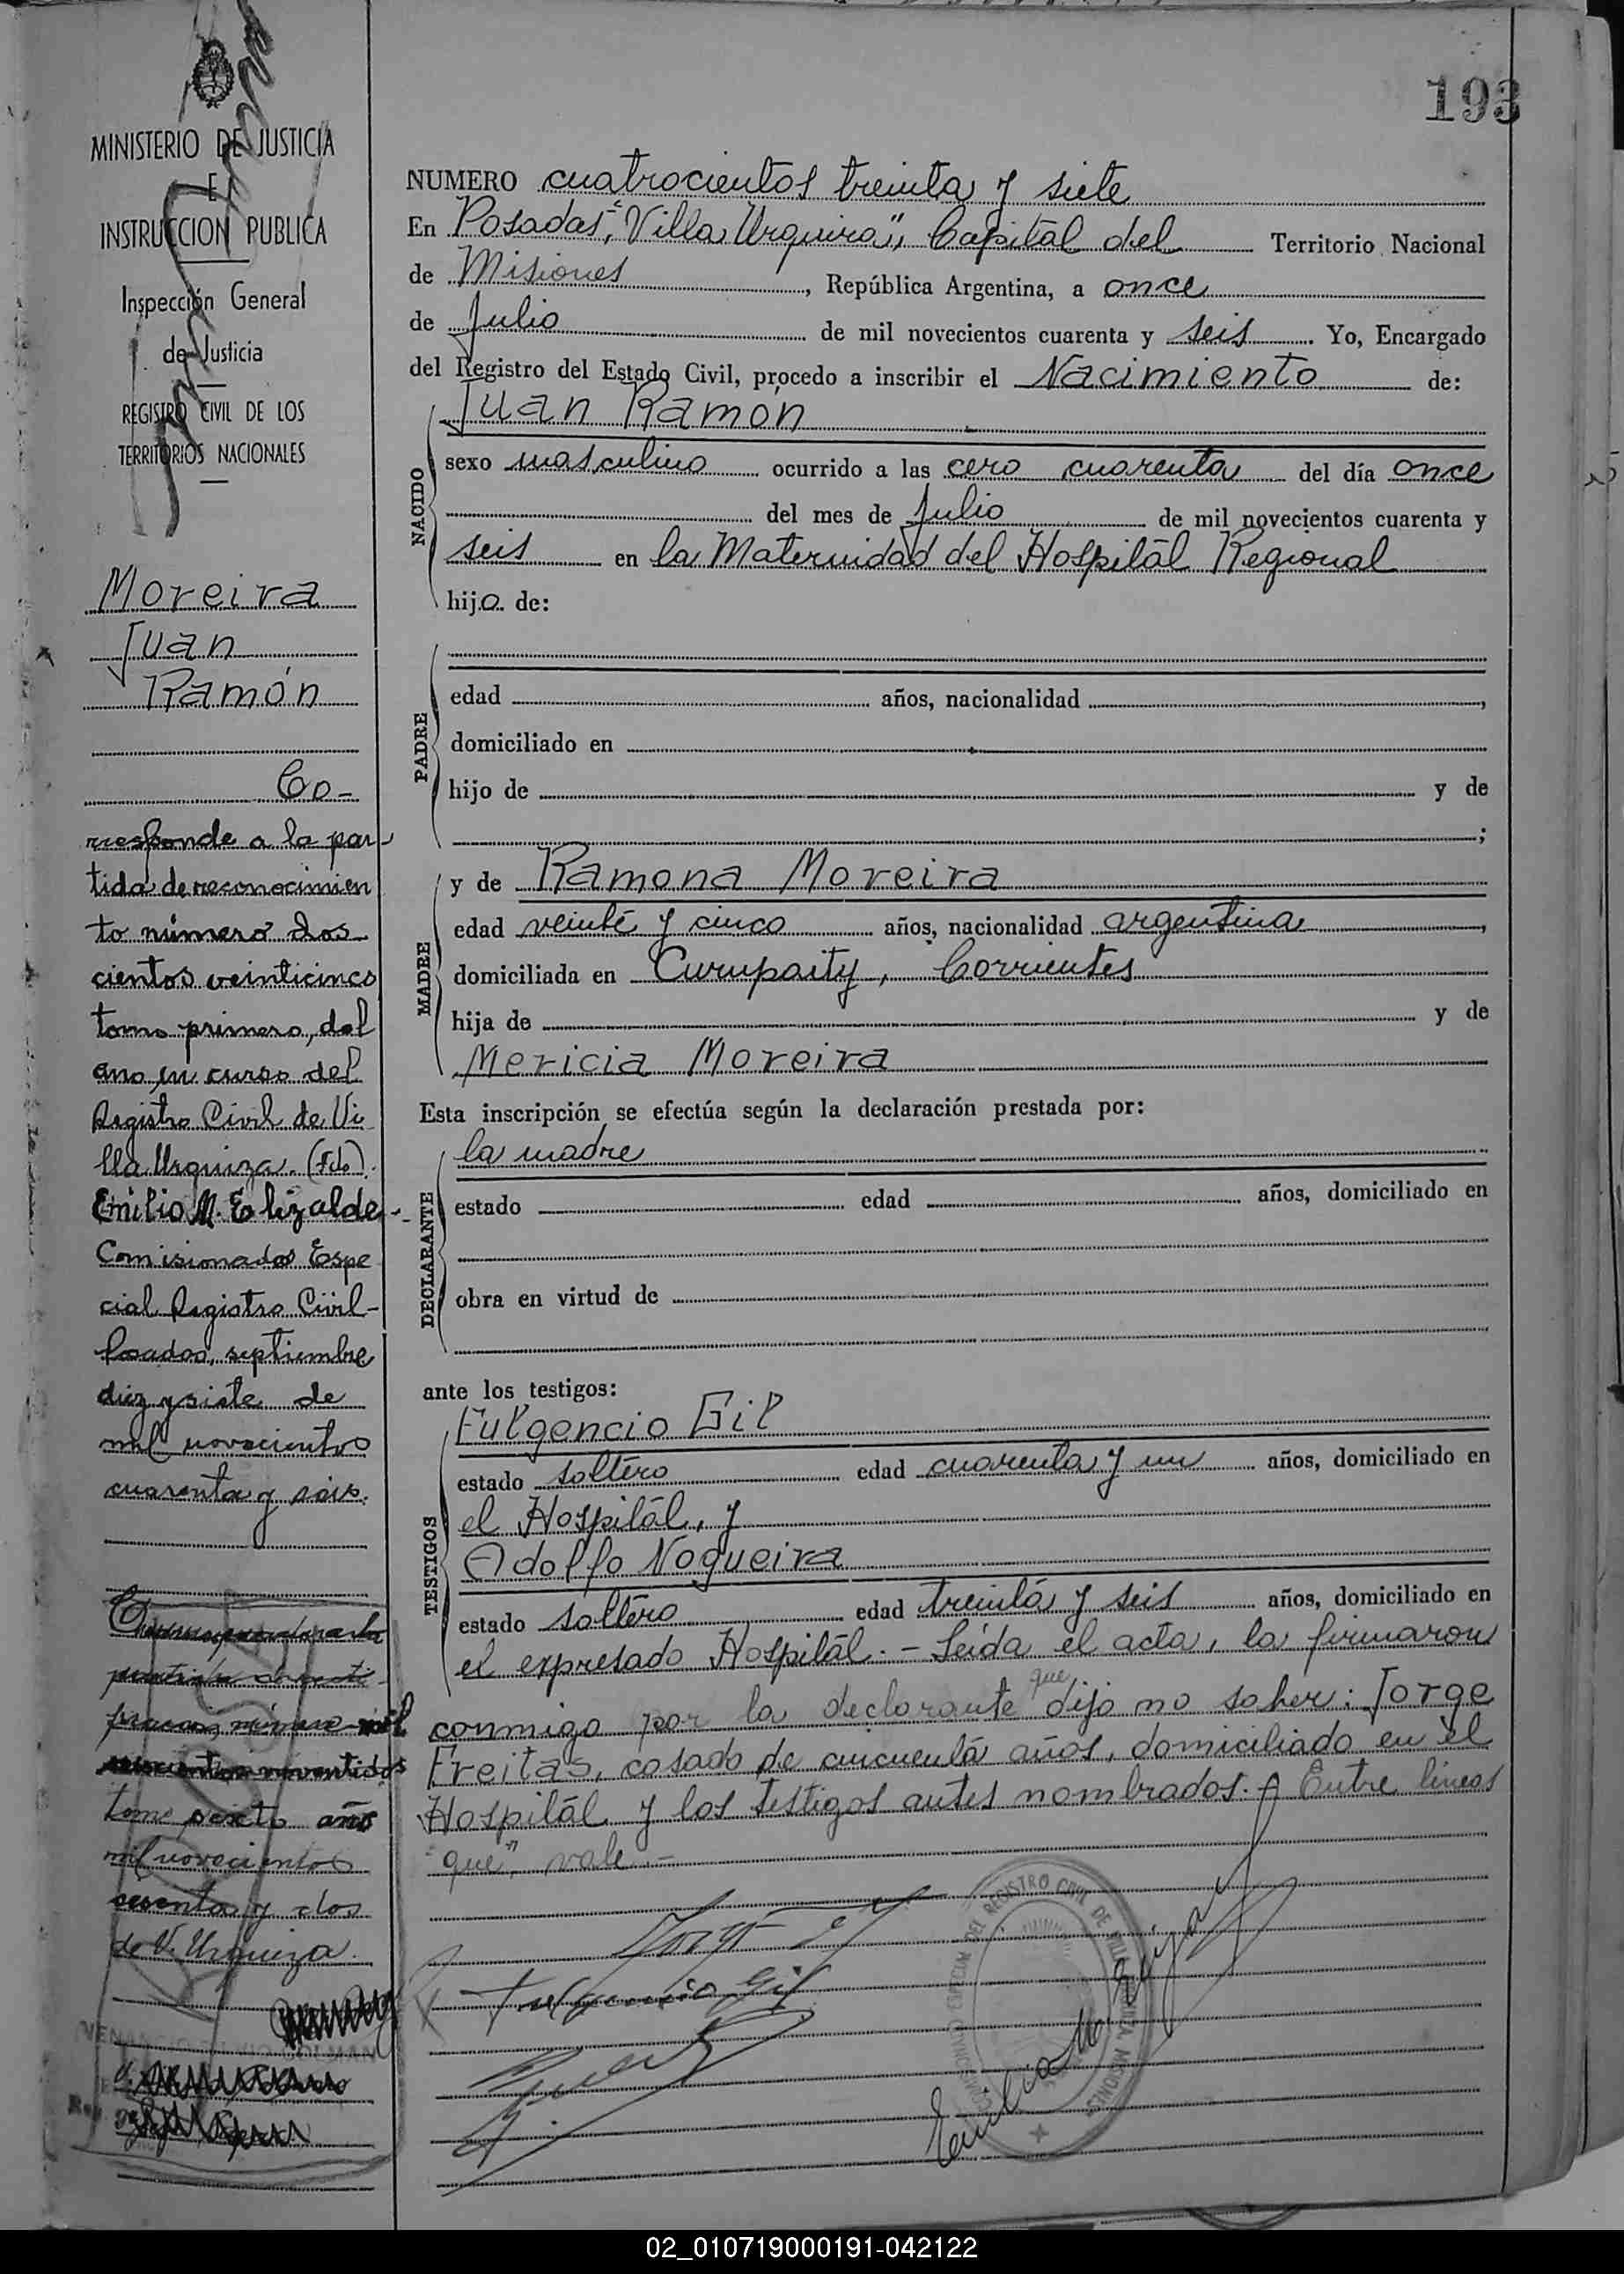 193
MINISTERIO DE JUSTICIA
E
INSTRUCCION PUBLICA
Inspección General
de Justicia
REGISTRO CIVIL DE LOS
TERRITORIOS NACIONALES
Moreira
Juan
Ramón
Co-
rresponde a la par-
tida de reconocimien
to número dos
cientos veinticinco
tomo primero, del
año en curso del
Registro Civil de Vi
lla Urquiza. (Fdo).
Emilio M. Elizalde.-
Comisionados Espe
cial Registro Civil-
Posadas, septiembre
diez y siete de
mil novecientos
cuarenta y seis.
tomo sexto año
mil novecientos
sesenta y dos
de V. Urquiza.
NUMERO cuatrocientos treinta y siete
En Posadas, "Villa Urquiza", Capital del Territorio Nacional
de Misiones, República Argentina, a once
de Julio de mil novecientos cuarenta y seis. Yo, Encargado
del Registro del Estado Civil, procedo a inscribir el Nacimiento de:
NACIDO
Juan Ramón
sexo masculino ocurrido a las cero cuarenta del día once
del mes de Julio de mil novecientos cuarenta y
seis en la Maternidad del Hospital Regional
hijo de:
PADRE
edad años, nacionalidad ,
domiciliado en
hijo de y de
;
MADRE
y de Ramona Moreira
edad veinte y cinco años, nacionalidad argentina,
domiciliada en Curupaity, Corrientes
hija de y de
Mericia Moreira
Esta inscripción se efectúa según la declaración prestada por:
DECLARANTE
la madre
estado edad años, domiciliado en
obra en virtud de
ante los testigos:
TESTIGOS
Fulgencio Gil
estado soltero edad cuarenta y un años, domiciliado en
el Hospital, y
Adolfo Nogueira
estado soltero edad treinta y seis años, domiciliado en
el expresado Hospital.- Leída el acta, la firmaron
conmigo por la declarante que dijo no saber: Jorge
Freitas, casado de cincuenta años, domiciliado en el
Hospital y los testigos antes nombrados.- Entre líneas
"que", vale.-
Fulgencio Gil
02_010719000191-042122